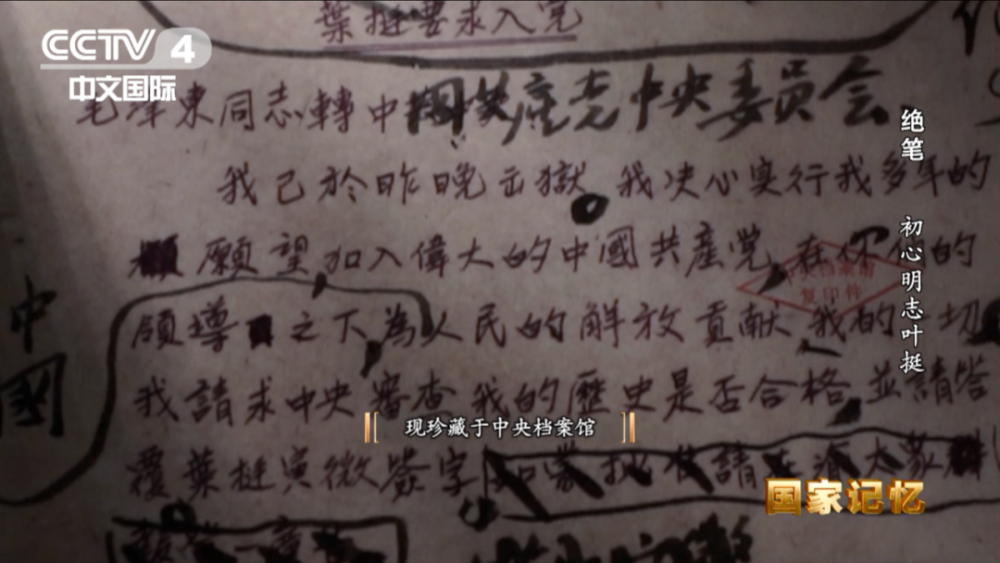 葉挺要求入党
CCTV 4
中文国际
毛澤東同志轉中國共产党中央委员会
我已於昨晚出獄 我决心实行我多年的
願望 加入偉大的中國共産党 在你们的
領導之下為人民的解放貢献 我的一切
我請求中央審查我的歷史是否合格 並請答
覆 葉挺寅微 簽字 如蒙批准請
中國
中央档案館
复印件
绝笔 初心明志叶挺
现珍藏于中央档案馆
国家记忆